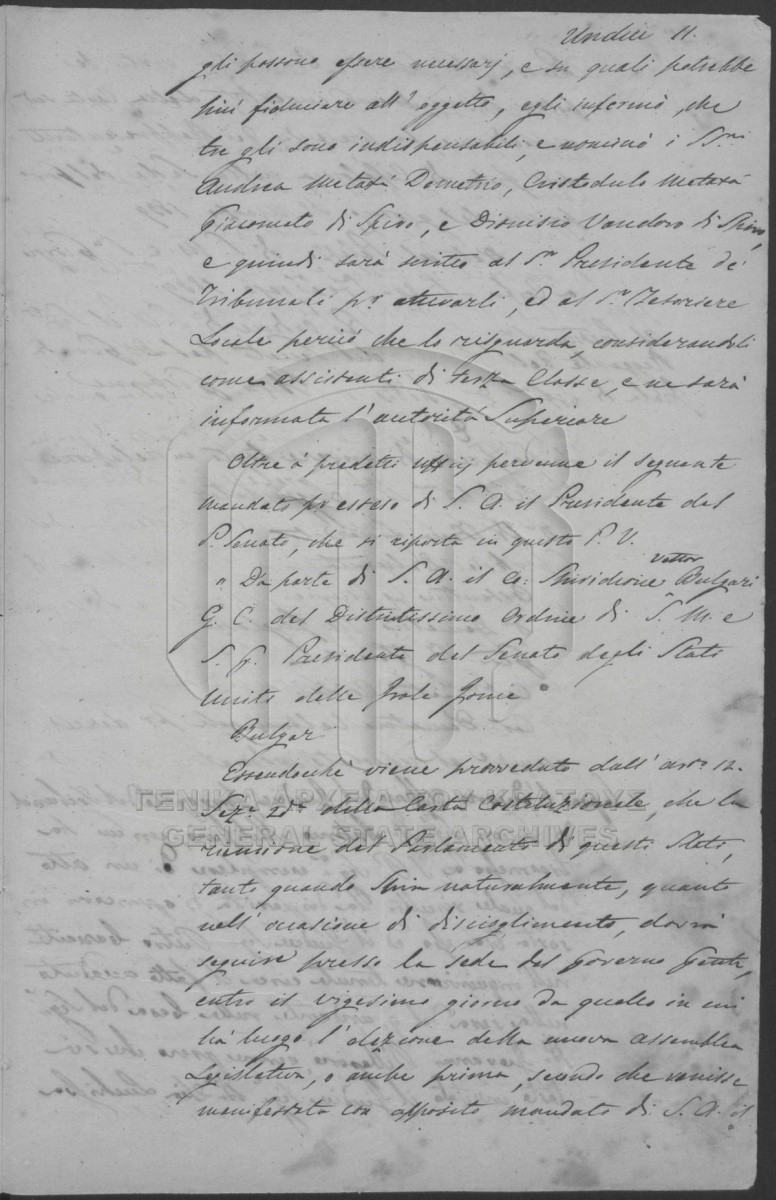 Undici 11.
gli possono essere necessarj, e su quali potrebbe
fiduciare all' oggetto, egli informò, che
tre gli sono indispensabili, e nominò i Sri
Andrea Metaxà Demetrio, Cristodulo Metaxà
Giacomato di Spiro, e Dionisio Vandoro di Spiro,
e quindi sarà scritto al Sr Presidente de'
Tribunali pr attivarli, ed al Sr Tesoriere
Locale perciò che lo risguarda, considerandoli
come assistenti di terza Classe, e ne sarà
informata l'autorità Superiore
Oltre à predetti ufficj pervenne il seguente
mandato pr esteso di S. A. il Presidente del
P. Senato, che si riporta in questo P. V.
" Da parte di S. A. il Co: Spiridione Vettor Bulgari
G. C. del Distintissimo Ordine di S. M. e
S. G. Presidente del Senato degli Stati
Uniti delle Isole Jonie
Bulgar
Essendochè viene provveduto dall' arto 12.
Sez. 2da della Carta Costituzionale, che la
riunione del Parlamento di questi Stati,
tanto quando spira naturalmente, quanto
nell' occasione di discioglimento, dovrà
seguire presso la Sede del Governo Gente,
entro il vigesimo giorno da quello in cui
hà luogo l'elezione della nuova assemblea
Legislativa, o anche prima, secondo che venisse
manifestato con apposito mandato di S. A. il
ΓΕΝΙΚΑ ΑΡΧΕΙΑ ΤΟΥ ΚΡΑΤΟΥΣ
GENERAL STATE ARCHIVES